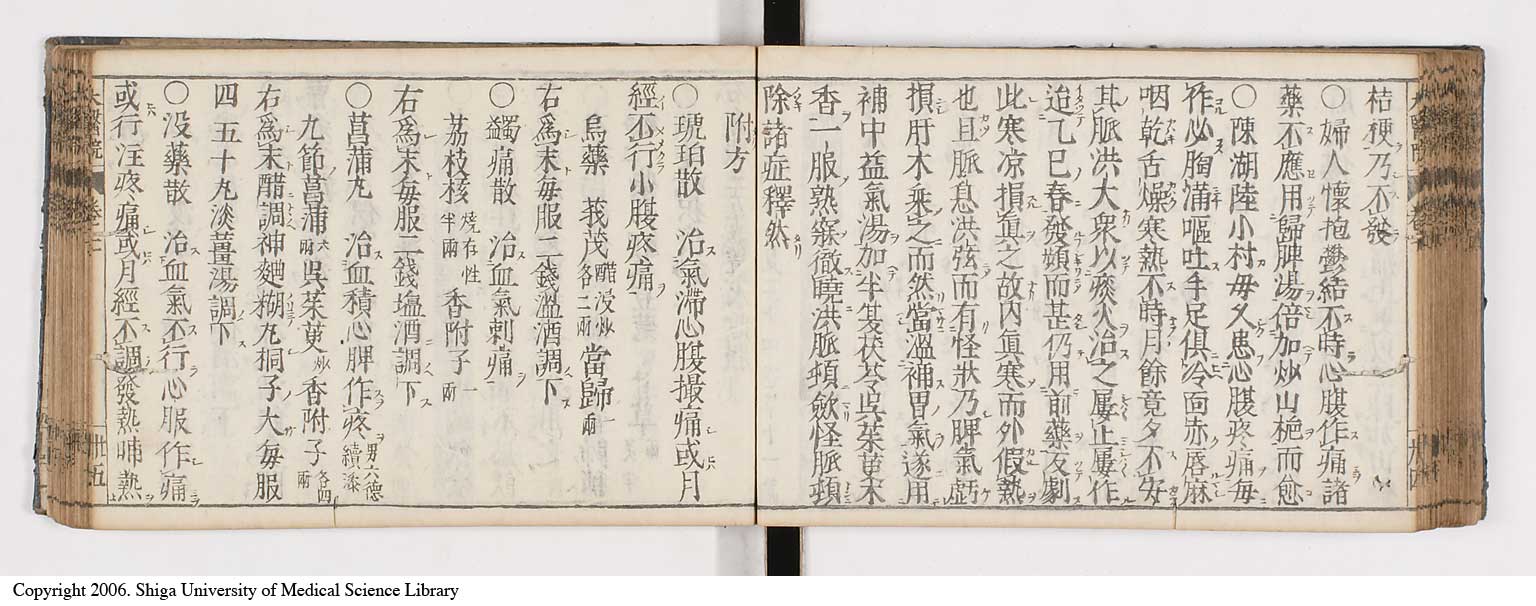 桔梗乃不發
〇婦人懷抱鬱結不時心腹作痛諸
藥不應用歸脾湯倍加炒山梔而愈
〇陳湖陸小村毋久患心腹疼痛毎
作必胸滿嘔吐手足俱冷面赤唇麻
咽乾舌燥寒熱不時月餘竟夕不安
其脈洪大衆以痰火治之屢止屢作
迨乙巳春發頻而甚仍用前藥反劇
此寒凉損眞之故內眞寒而外假熱
也且脈息洪弦而有怪狀乃脾氣虧
損肝木乘之而然當溫補胃氣遂用
補中益氣湯加半夏茯苓呉茱萸木
香一服熟寐徹曉洪脈頓歛怪脈頓
除諸症釋然
附方
〇琥珀散 治氣滯心腹撮痛或月
經不行小腹疼痛
烏藥 莪茂醋浸炒各二兩 當歸兩
右爲末毎服二錢溫酒調下
〇蠲痛散 治血氣刺痛
荔枝核燒存性半兩 香附子一兩
右爲末毎服二錢塩酒調下
〇菖蒲丸 治血積心脾作疼男六德續添
九節菖蒲六兩 呉茱萸炒 香附子各四兩
右爲末醋調神麯糊丸桐子大毎服
四五十丸淡薑湯調下
〇没藥散 治血氣不行心腹作痛
或行注疼痛或月經不調發熱晡熱
卅五
Copyright 2006. Shiga University of Medical Science Library